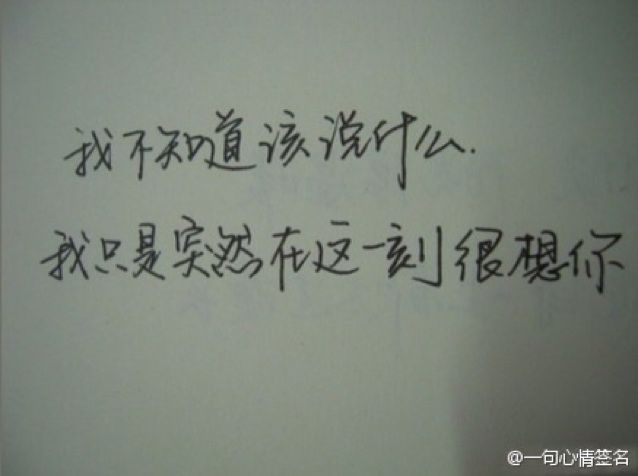 我不知道该说什么.
我只是突然在这一刻很想你
@一句心情签名